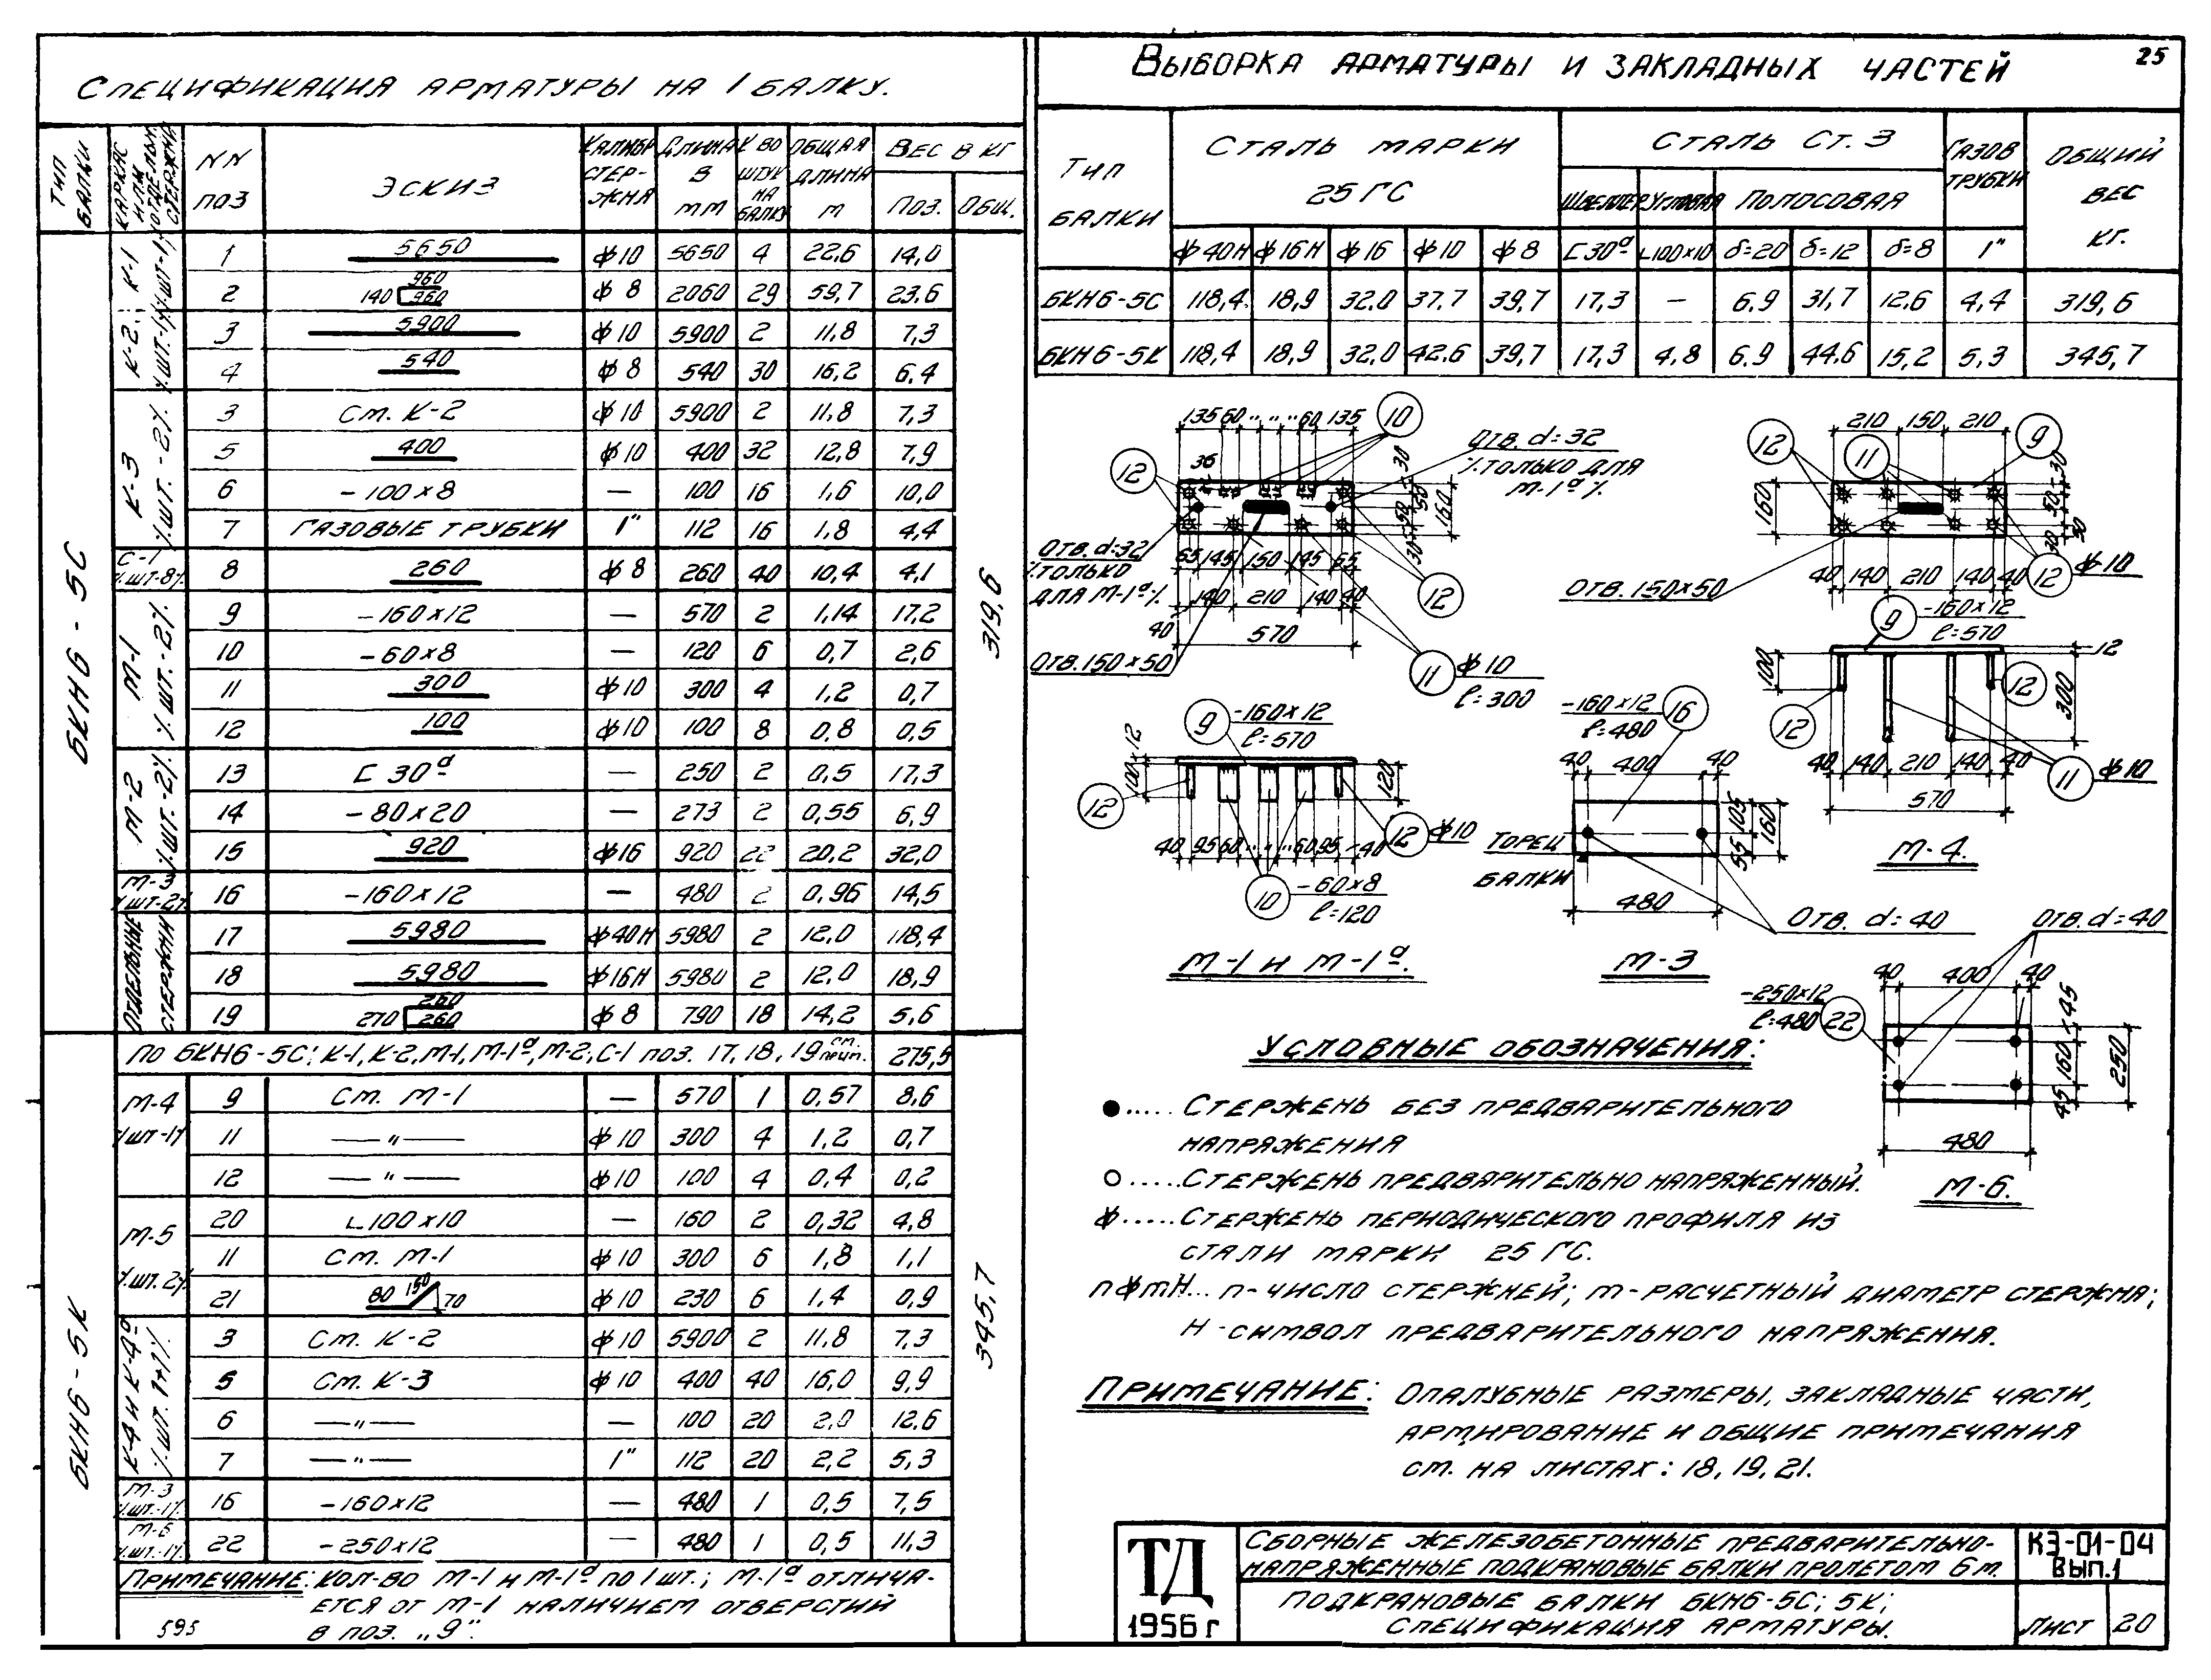 25
Спецификация арматуры на 1 балку.
Тип балки | Каркас и № отдельн. стержня | NN поз | Эскиз | Калибр стержня | Длина в mm | К-во штук на балку | Общая длина m | Вес в кг Поз. | Общ.
БКН6-5С | 319,6
К-1 /шт.-1/
1 | 5650 | ф10 | 5650 | 4 | 22,6 | 14,0
2 | 140 960 960 | ф8 | 2060 | 29 | 59,7 | 23,6
К-2 /шт.-1/
3 | 5900 | ф10 | 5900 | 2 | 11,8 | 7,3
4 | 540 | ф8 | 540 | 30 | 16,2 | 6,4
К-3 /шт.-2/
3 | См. К-2 | ф10 | 5900 | 2 | 11,8 | 7,3
5 | 400 | ф10 | 400 | 32 | 12,8 | 7,9
6 | -100×8 | — | 100 | 16 | 1,6 | 10,0
7 | Газовые трубки | 1" | 112 | 16 | 1,8 | 4,4
С-1 /шт-8/
8 | 260 | ф8 | 260 | 40 | 10,4 | 4,1
М-1 /шт.-2/
9 | -160×12 | — | 570 | 2 | 1,14 | 17,2
10 | -60×8 | — | 120 | 6 | 0,7 | 2,6
11 | 300 | ф10 | 300 | 4 | 1,2 | 0,7
12 | 100 | ф10 | 100 | 8 | 0,8 | 0,5
М-2 /шт.-2/
13 | [30а | — | 250 | 2 | 0,5 | 17,3
14 | -80×20 | — | 273 | 2 | 0,55 | 6,9
15 | 920 | ф16 | 920 | 22 | 20,2 | 32,0
М-3 /шт-2/
16 | -160×12 | — | 480 | 2 | 0,96 | 14,5
Отдельные стержни
17 | 5980 | ф40Н | 5980 | 2 | 12,0 | 118,4
18 | 5980 | ф16Н | 5980 | 2 | 12,0 | 18,9
19 | 270 260 260 | ф8 | 790 | 18 | 14,2 | 5,6
БКН6-5К | 345,7
По БКН6-5С; К-1, К-2, М-1, М-1а, М-2, С-1 поз. 17, 18, 19 см. прим. | 275,5
М-4 /шт-1/
9 | См. М-1 | — | 570 | 1 | 0,57 | 8,6
11 | —"— | ф10 | 300 | 4 | 1,2 | 0,7
12 | —"— | ф10 | 100 | 4 | 0,4 | 0,2
М-5 /шт. 2/
20 | ∟100×10 | — | 160 | 2 | 0,32 | 4,8
11 | См. М-1 | ф10 | 300 | 6 | 1,8 | 1,1
21 | 80 150 70 | ф10 | 230 | 6 | 1,4 | 0,9
К-4 и К-4а /шт. 1+1/
3 | См. К-2 | ф10 | 5900 | 2 | 11,8 | 7,3
5 | См. К-3 | ф10 | 400 | 40 | 16,0 | 9,9
6 | —"— | — | 100 | 20 | 2,0 | 12,6
7 | —"— | 1" | 112 | 20 | 2,2 | 5,3
М-3 /шт.-1/
16 | -160×12 | — | 480 | 1 | 0,5 | 7,5
М-6 /шт.-1/
22 | -250×12 | — | 480 | 1 | 0,5 | 11,3
Примечание: Кол-во М-1 и М-1а по 1 шт.; М-1а отлича-
ется от М-1 наличием отверстий
в поз. „9".
595
Выборка арматуры и закладных частей
Тип балки | Сталь марки 25ГС | Сталь Ст. 3 | Газов трубки | Общий вес кг.
Швеллер | Угловая | Полосовая
ф40Н | ф16Н | ф16 | ф10 | ф8 | [30а | ∟100×10 | δ=20 | δ=12 | δ=8 | 1"
БКН6-5С | 118,4 | 18,9 | 32,0 | 37,7 | 39,7 | 17,3 | — | 6,9 | 31,7 | 12,6 | 4,4 | 319,6
БКН6-5К | 118,4 | 18,9 | 32,0 | 42,6 | 39,7 | 17,3 | 4,8 | 6,9 | 44,6 | 15,2 | 5,3 | 345,7
135 60 " " " 60 135
10
Отв. d=32
/только для
М-1а/
12
36
30 50 50 30
160
Отв. d=32
/только
для М-1а/
65 145 150 145 65
140 210 140 40
40
570
12
Отв. 150×50
11 ф10
ℓ=300
210 150 210
12 11 9
160
30 50 50 30
Отв. 150×50
40 140 210 140 40
12 ф10
9 -160×12
ℓ=570
100
12
300
12
12
40 140 210 140 40
11 ф10
570
М-4.
9 -160×12
ℓ=570
100 12
120
12
12 ф10
40 95 60 " " " 60 95 40
10 -60×8
ℓ=120
М-1 и М-1а.
-160×12 16
ℓ=480
40 400 40
55 105
160
Торец
балки
480
Отв. d=40
М-3
Отв. d=40
40 400 40
-250×12
ℓ=480 22
45 160 45
250
480
М-6.
Условные обозначения:
●..... Стержень без предварительного
напряжения
○..... Стержень предварительно напряженный.
ф..... Стержень периодического профиля из
стали марки 25ГС.
nфmН... n-число стержней; m-расчетный диаметр стержня;
Н-символ предварительного напряжения.
Примечание: Опалубные размеры, закладные части,
армирование и общие примечания
см. на листах: 18, 19, 21.
ТД
1956 г
Сборные железобетонные предварительно-
напряженные подкрановые балки пролетом 6 m.
КЭ-01-04
Вып. 1
Подкрановые балки БКН6-5С; 5К;
Спецификация арматуры.
Лист 20